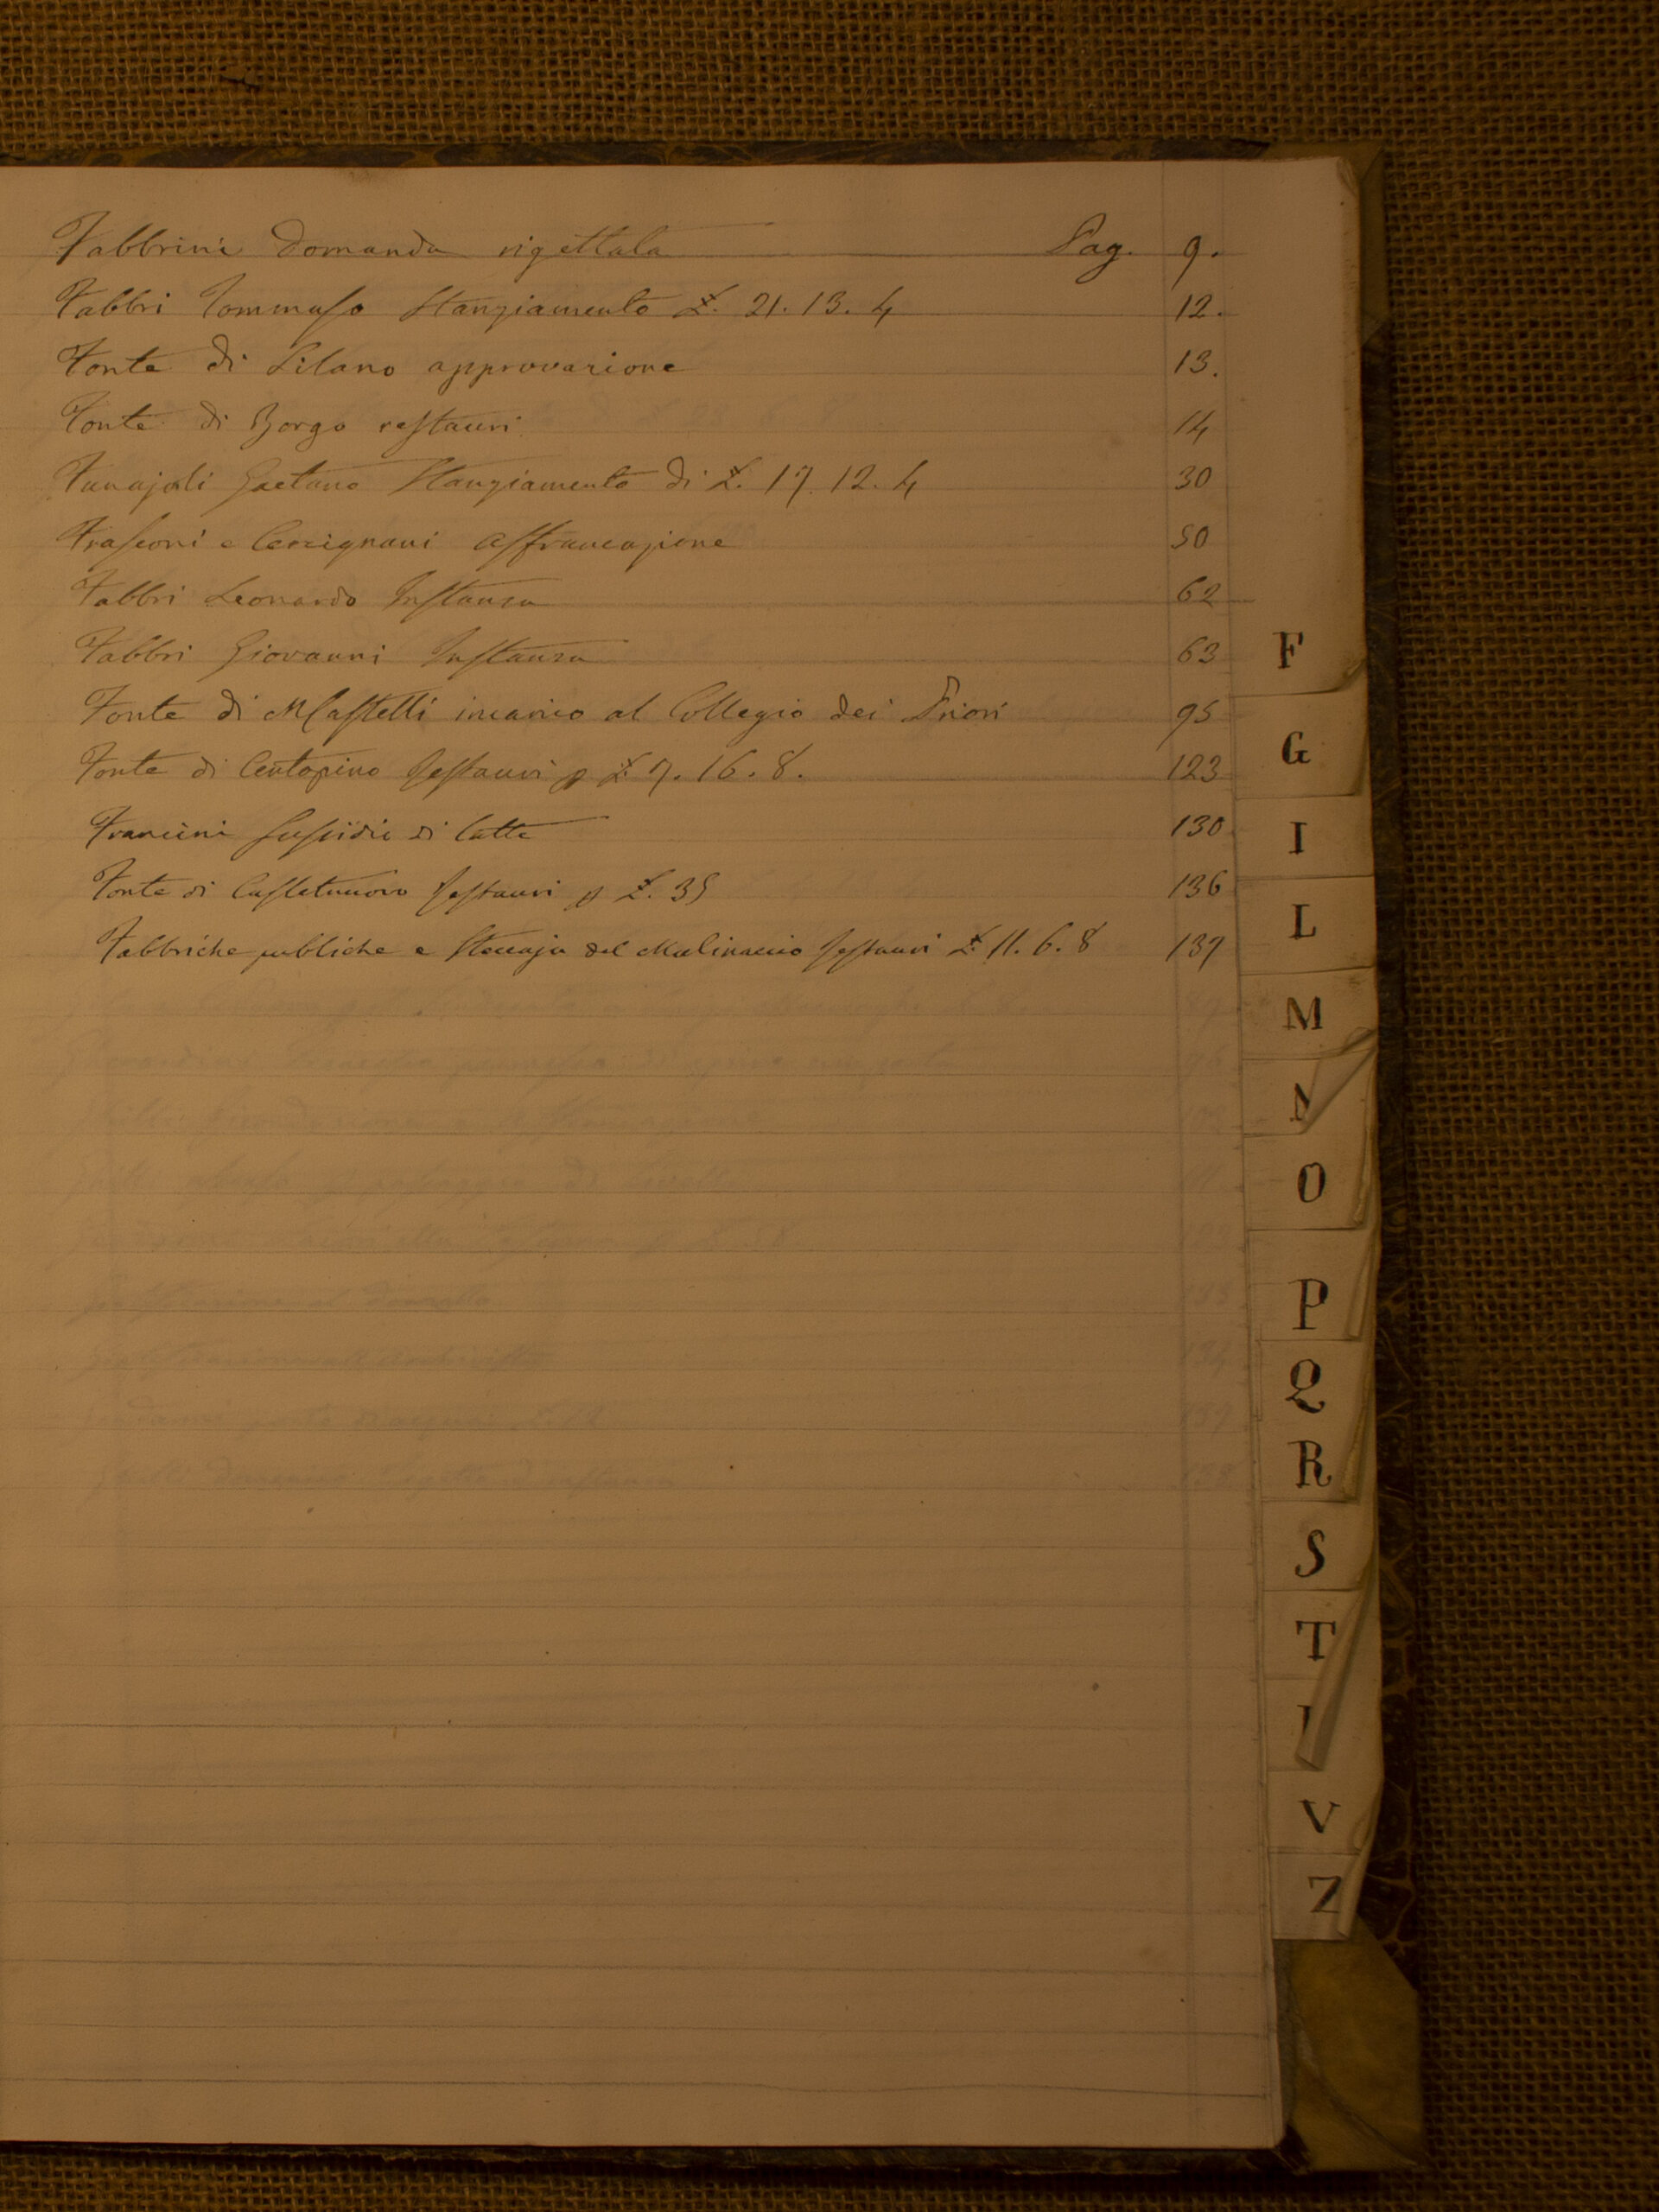 Fabbrini Domanda rigettata Pag. 9.
Fabbri Tommaso Stanziamento £. 21. 13. 4 12.
Fonte di Silano approvazione 13.
Fonte di Borgo restauri 14
Gaetano Stanziamento di £. 17. 12. 4 30
Frasconi e Cercignani affrancazione 50
Fabbri Leonardo Instanza 62
Fabbri Giovanni Instanza 63
Fonte di incarico al Collegio dei Priori 95
Fonte di Centopino restauri p £ 7. 16. 8. 123
Francini Sussidio di latte 130
Fonte di Castelnuovo restauri p £. 35 136
Fabbriche pubbliche e Steccaja del Mulinaccio restauri £. 11. 6. 8 137
F
G
I
L
M
N
O
P
Q
R
S
T
V
Z